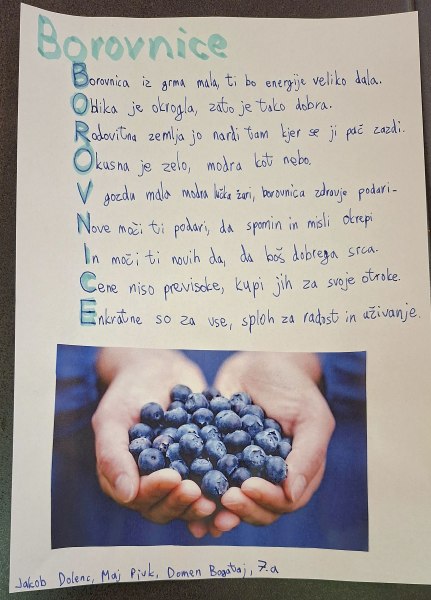 Borovnice
Borovnica iz grma mala, ti bo energije veliko dala.
Oblika je okrogla, zato je tako dobra.
Rodovitna zemlja jo nardi tam kjer se ji pač zazdi.
Okusna je zelo, modra kot nebo.
V gozdu mala modra lučka žari, borovnica zdravje podari-
Nove moči ti podari, da spomin in misli okrepi
In moči ti novih da, da boš dobrega srca.
Cene niso previsoke, kupi jih za svoje otroke.
Enkratne so za vse, sploh za radost in uživanje.
Jakob Dolenc, Maj Pivk, Domen Bogataj, 7.a